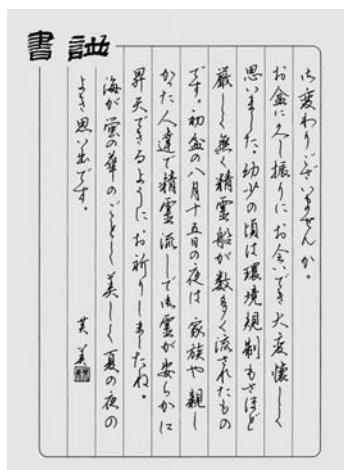 書誌
御変わりございませんか。
お盆に久し振りにお会いでき大変懐しく
思いました。幼少の頃は環境規制もさほど
厳しく無く精霊船が数多く流されたもの
です。初盆の八月十五日の夜は家族や親し
かった人達で精霊流しで御霊が安らかに
昇天できるようにお祈りしましたね。
海が蛍の華のごとく美しく夏の夜の
よき思い出です。
美